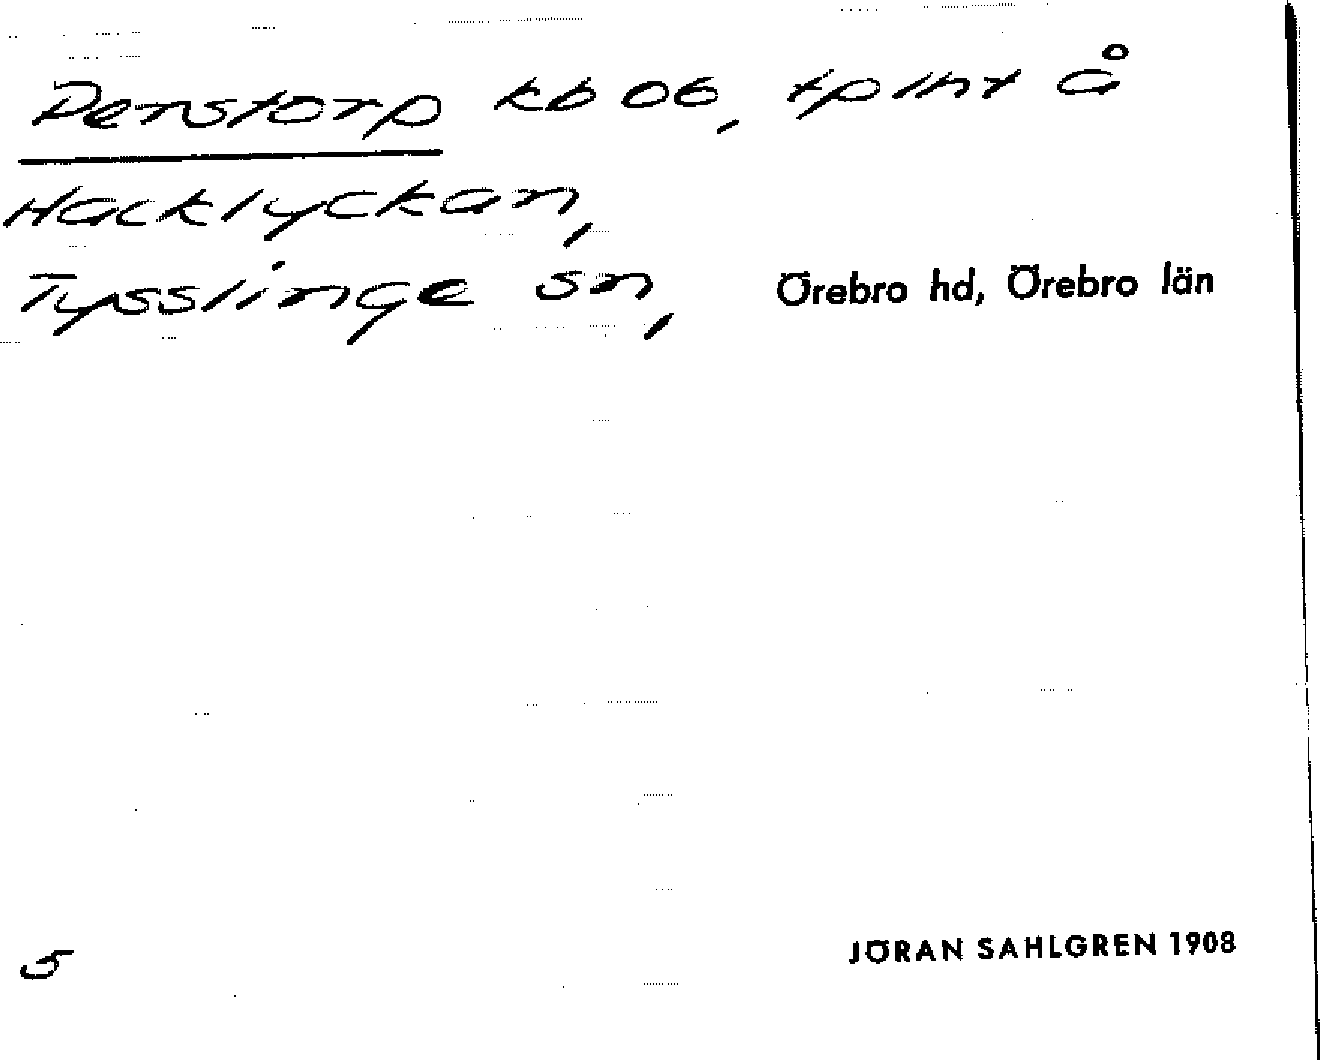 Denstorp kb 06, tplht å
Hacklyckan,
Tysslinge sn, Örebro hd, Örebro län
5 JÖRAN SAHLGREN 1908